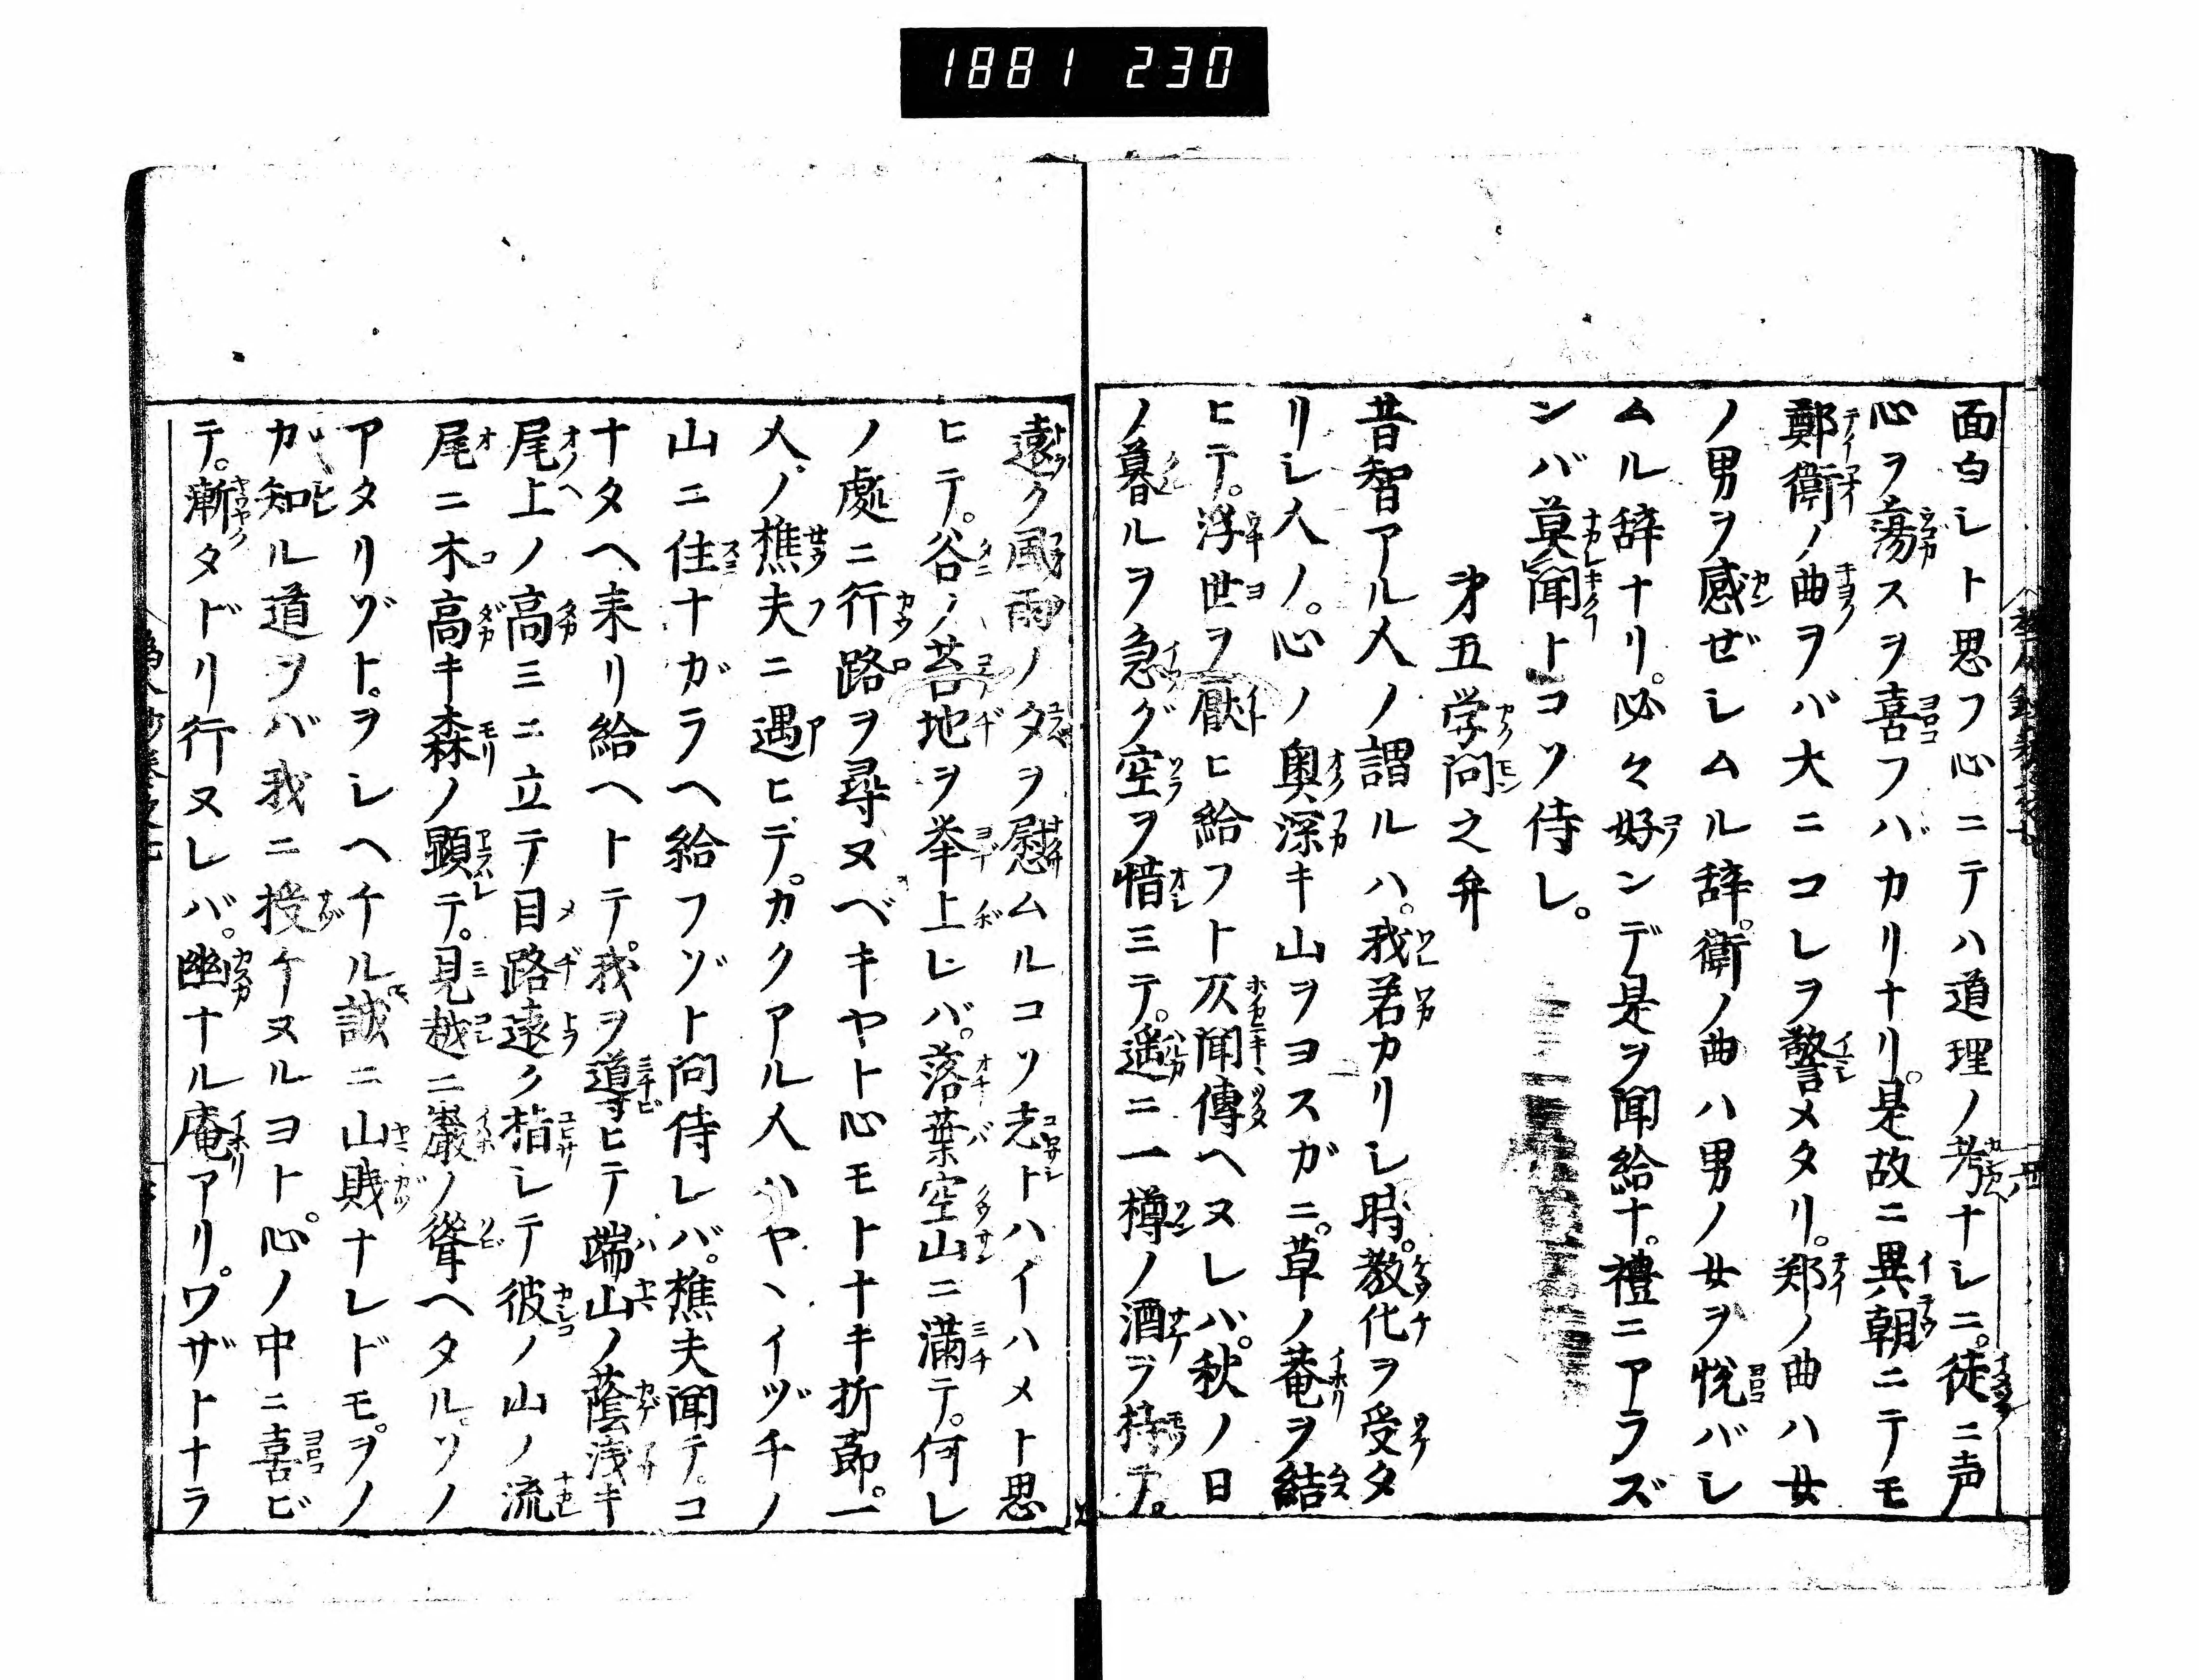 1881 230
面白シト思フ心ニテハ道理ノ考ナシニ。徒ニ声
心ヲ蕩スヲ喜フバカリナリ。是故ニ異朝ニテモ
鄭衛ノ曲ヲバ大ニコレヲ警メタリ。郑ノ曲ハ女
ノ男ヲ感ぜシムル辞。衛ノ曲ハ男ノ女ヲ悦バシ
ムル辞ナリ。必々好ンデ是ヲ聞給ナ。禮ニアラズ
ンバ莫聞トコソ侍レ。
第五学問之弁
昔智アル人ノ謂ルハ。我君カリシ時。教化ヲ受タ
リシ人ノ。心ノ奥深キ山ヲヨスガニ。草ノ菴ヲ結
ヒテ。浮世ヲ厭ヒ給フト仄聞傳ヘヌレバ。秋ノ日
ノ暮ルヲ急グ空ヲ惜ミテ。遥ニ一樽ノ酒ヲ持テ。
遠ク風雨ノ夕ヲ慰ムルコソ志トハイハメト思
ヒテ。谷ノ苔地ヲ挙上レバ。落葉空山ニ満テ。何レ
ノ處ニ行路ヲ尋ヌベキヤト心モトナキ折節。一
人ノ樵夫ニ遇ヒデ。カクアル人ハヤヽイヅチノ
山ニ住ナガラヘ給フゾト問侍レバ。樵夫聞テ。コ
ナタヘ来リ給ヘトテ。我ヲ導ヒテ端山ノ蔭浅キ
尾上ノ高ミニ立テ目路遠ク指シテ彼ノ山ノ流
尾ニ木高キ森ノ顕テ。見越ニ巌ノ聳ヘタル。ソノ
アタリゾト。ヲシヘケル。誠ニ山賎ナレドモ。ヲノ
カ知ル道ヲバ我ニ授ケヌルヨト。心ノ中ニ喜ビ
テ。漸タドリ行ヌレバ。幽ナル庵アリ。ワザトナラ